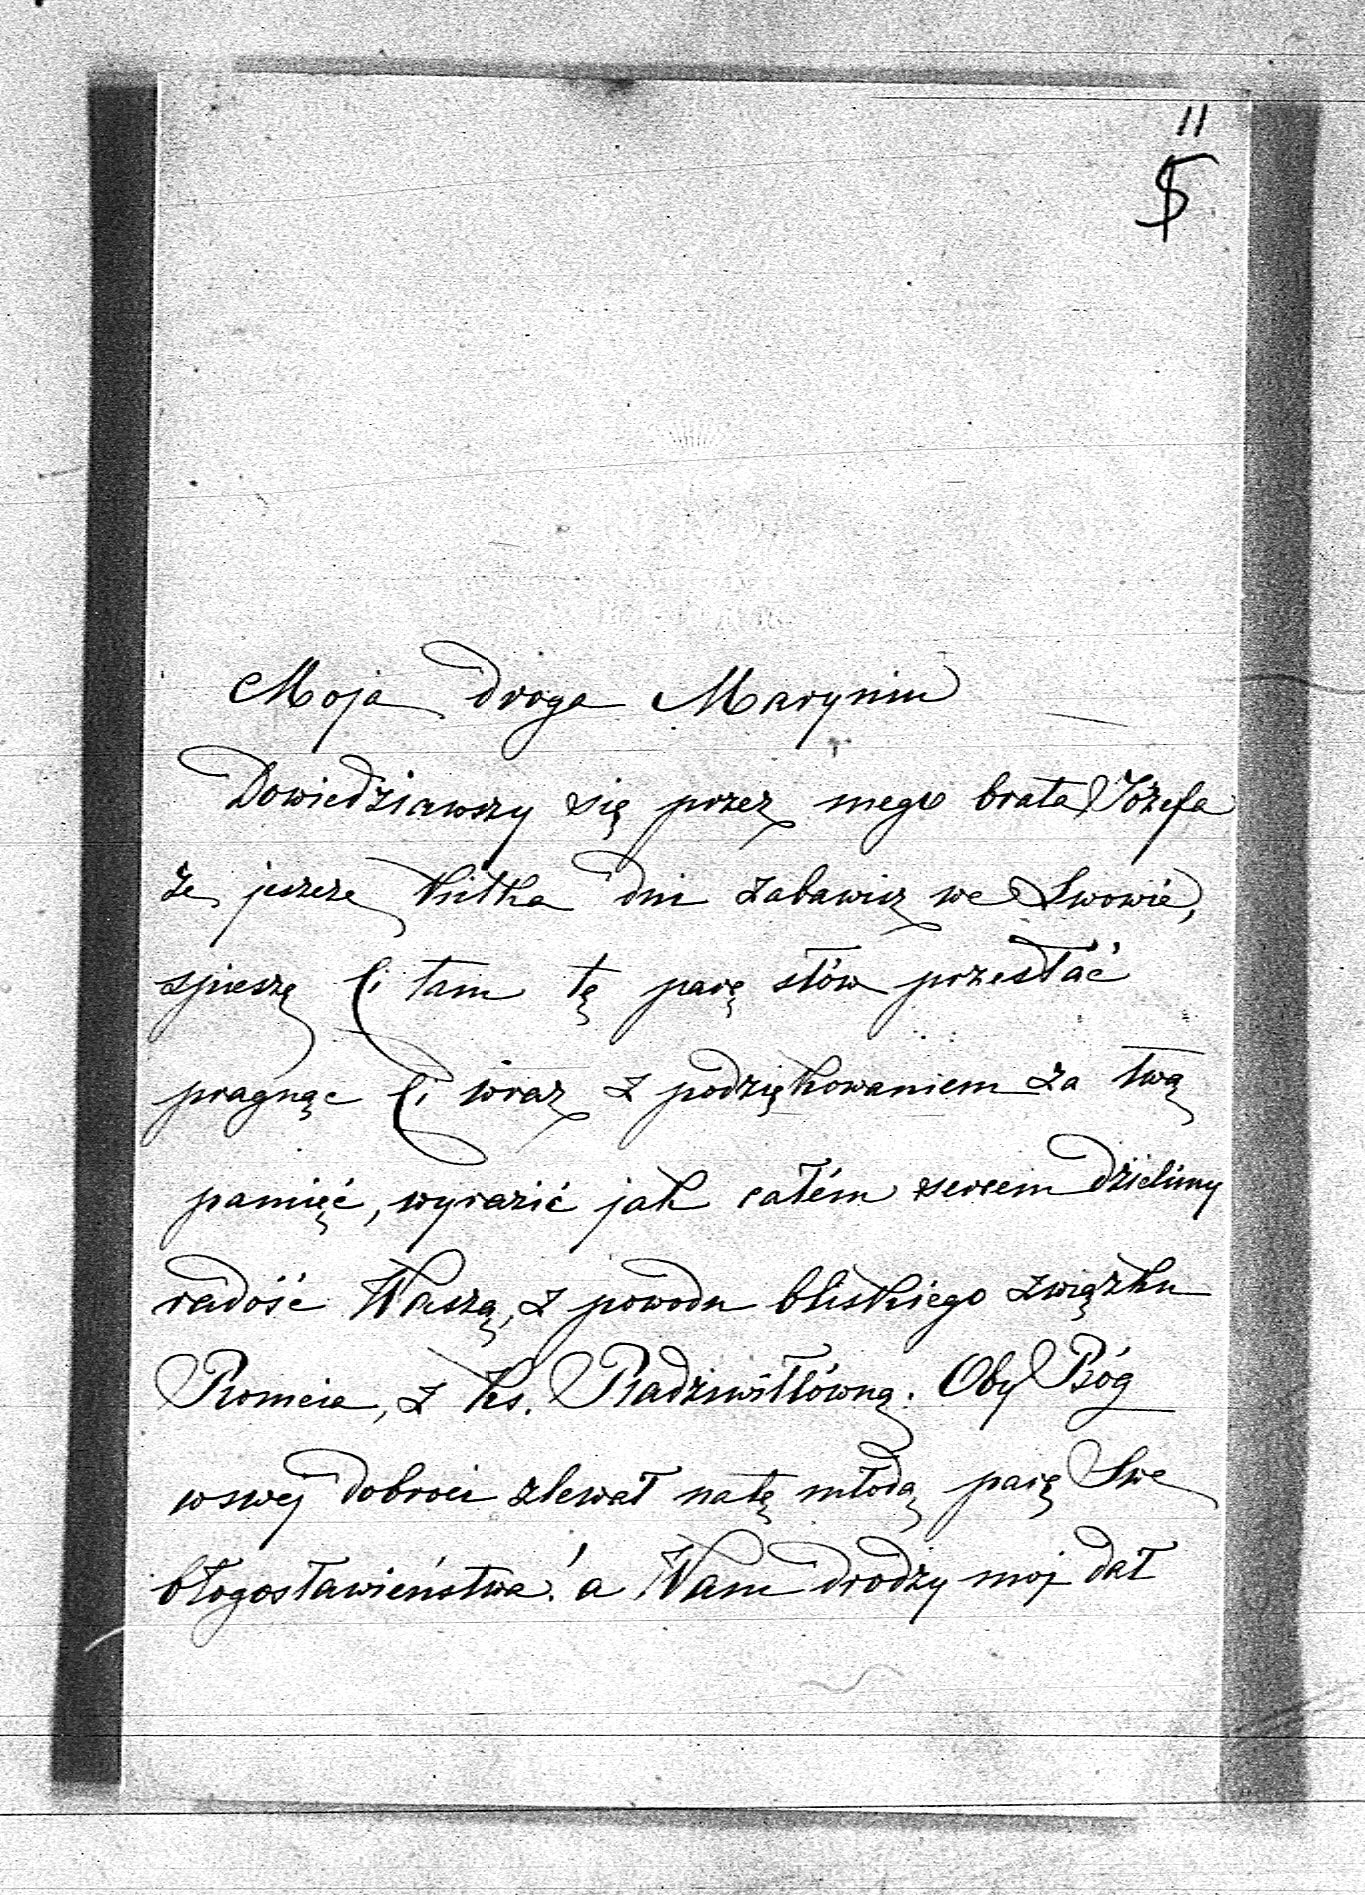 11
5
Moja droga Maryniu
Dowiedziawszy się przez mego brata Józefa
że jeszcze kilka dni zabawisz we Lwowie,
spieszę Ci tam tę parę słów przesłać
pragnąc Ci wraz z podziękowaniem za twą
pamięć, wyrazić jak całém sercem dzielimy
radość Waszą, z powodu bliskiego związku
Romcia, z ks. Radziwiłłówną. Oby Bóg
w swej dobroci zlewał na tę młodą parę Swe
błogosławieństwa! a Wam drodzy moi dał